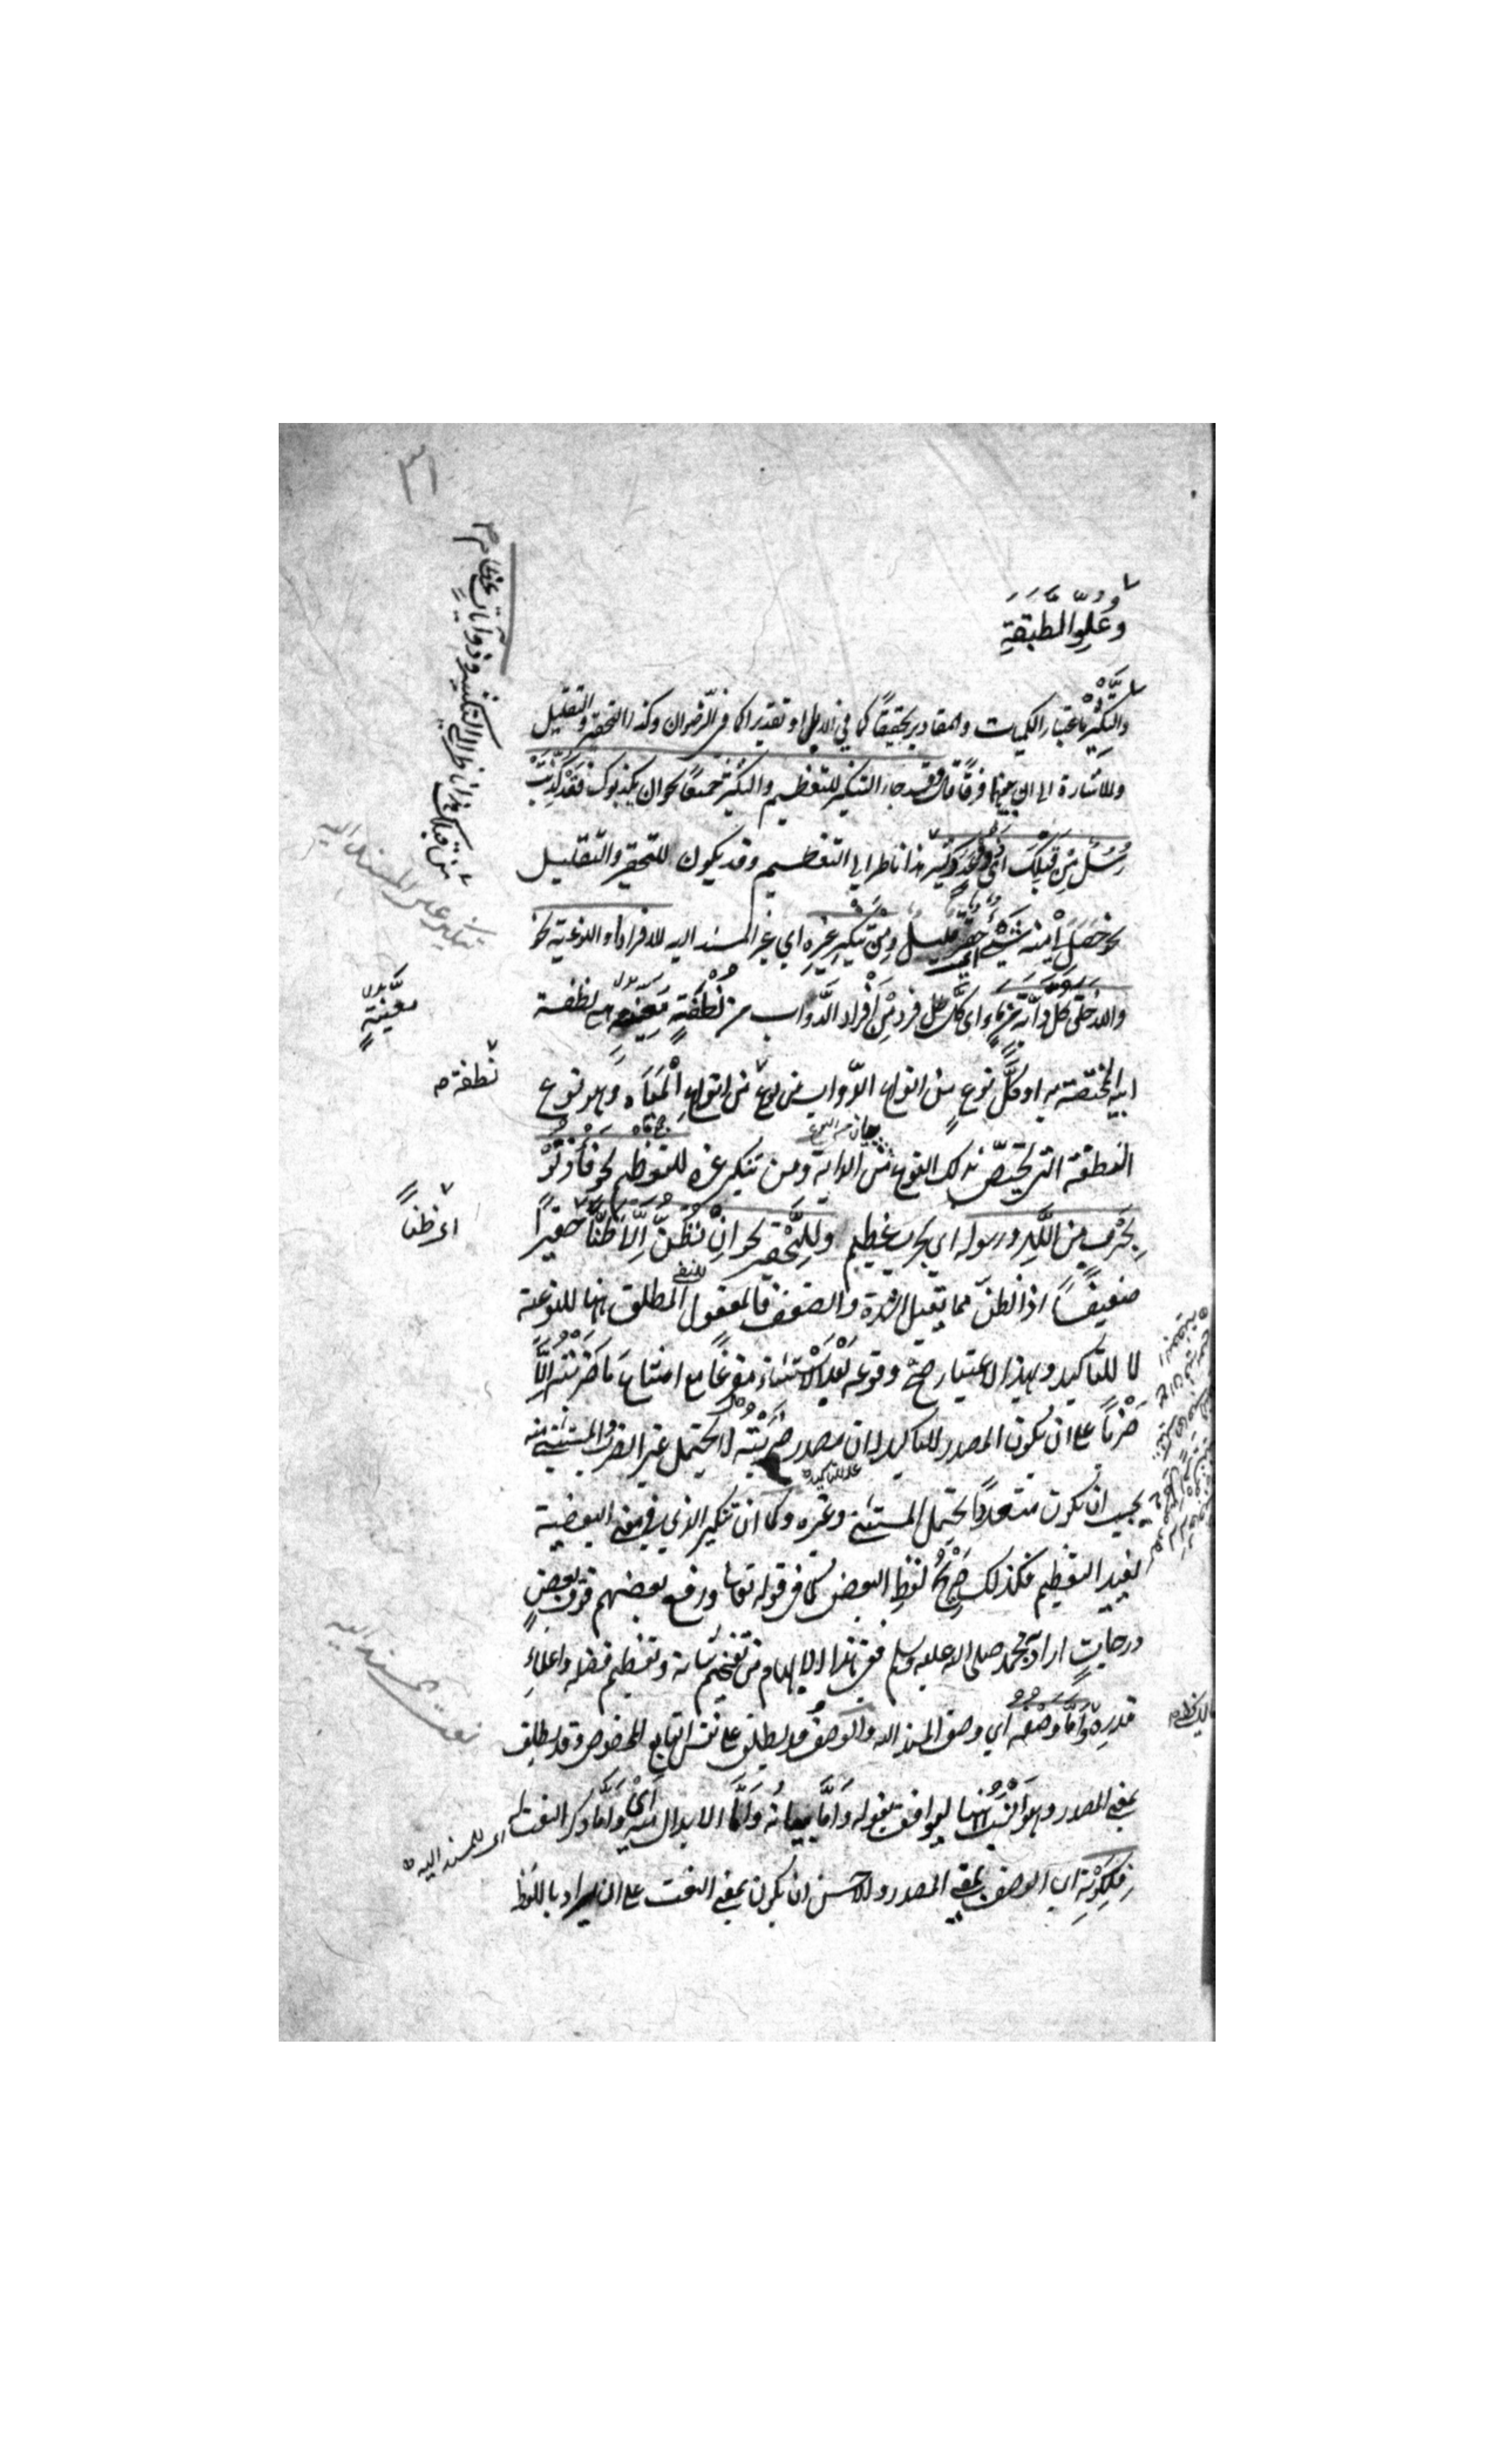 ٣١
وعلو الطبقة
والتكثير باعتبار الكميات والمقادير تحقيقًا كما في الابل او تقديرا كما في الرضوان وكذا التحقير والتقليل
وللاشارة الى ان بينهما فرقًا قال وقد جاء التنكير للتعظيم والتكثير جميعًا نحو ان يكذبوك فقد كُذِّبَتْ
رُسُلٌ مِنْ قَبْلِكَ اى ذوو عدد كثير هذا ناظر الى التعظيم وقد يكون للتحقير والتقليل
نحو حَصَلَ لى منه شَيْءٌ اى حقير قليل ومن تنكير غيره اي غير المسند اليه للافراد او النوعية نحو
والله خلق كل دابّة من ماء اى كل فرد من أفراد الدَّواب من نُطْفَةٍ معينة هى نطفة
ابيه المختصة به او كل نوعٍ من انواع الدّواب من نوع من انواع المياه وهو نوع
النطفة التى تختصّ بذلك النوع من الدابة ومن تنكير غيره للتعظيم نحو فأذنوا
بحَرْبٍ مِن اللَّهِ ورسوله اي بحرب عظيم وللتّحقير نحو انْ نَظُنُّ إلّا ظَنًّا حقيرًا
ضعيفًا اذ الظنّ مما يقبل الشدة والضعف فالمفعول المطلق ههنا للنوعية
لا للتاكيد وبهذا الاعتبار صحّ وقوعه بَعْد الاستثناء مفرغًا مع امتناع مَا ضَرَبْتُه إلّا
ضَرْبًا على ان يكون المصدر للتاكيد لان مصدر ضَرَبْتُه لا يحتمل غير الضرب والمستثنى منه
يجب ان يكون متعددًا يحتمل المستثنى وغيره وكما ان تنكير الذي في معنى البعضية
يفيد التعظيم فكذلك صريح لفظ البعض كما في قوله تعالى ورفع بعضهم فوق بعضٍ
درجاتٍ اراد به محمد صلى الله عليه وسلم ففى هذا الابهام من تفخيم شانه وتعظيم فضله واعلاء
قدره وَأمَّا وصْفُه اي وصف المسند اليه والوصف قد يطلق على نفس التابع المخصوص وقد يطلق
بمعنى المصدر وهو أنسب ههنا ليوافق بقوله وَأمَّا بيانه وَأمَّا الابدال منه اى وأمّا ذكر النعت له
فلِكَوْنِه اى الوصف بمعنى المصدر والاحسن ان يكون بمعنى النعت على ان يراد باللفظ
من قبلك هذا ناظر الى التكثير وذو آيات عظام
تنكير غير المسند اليه
معينةٍ
نطفة
اى ظنًا
اى للمسند اليه